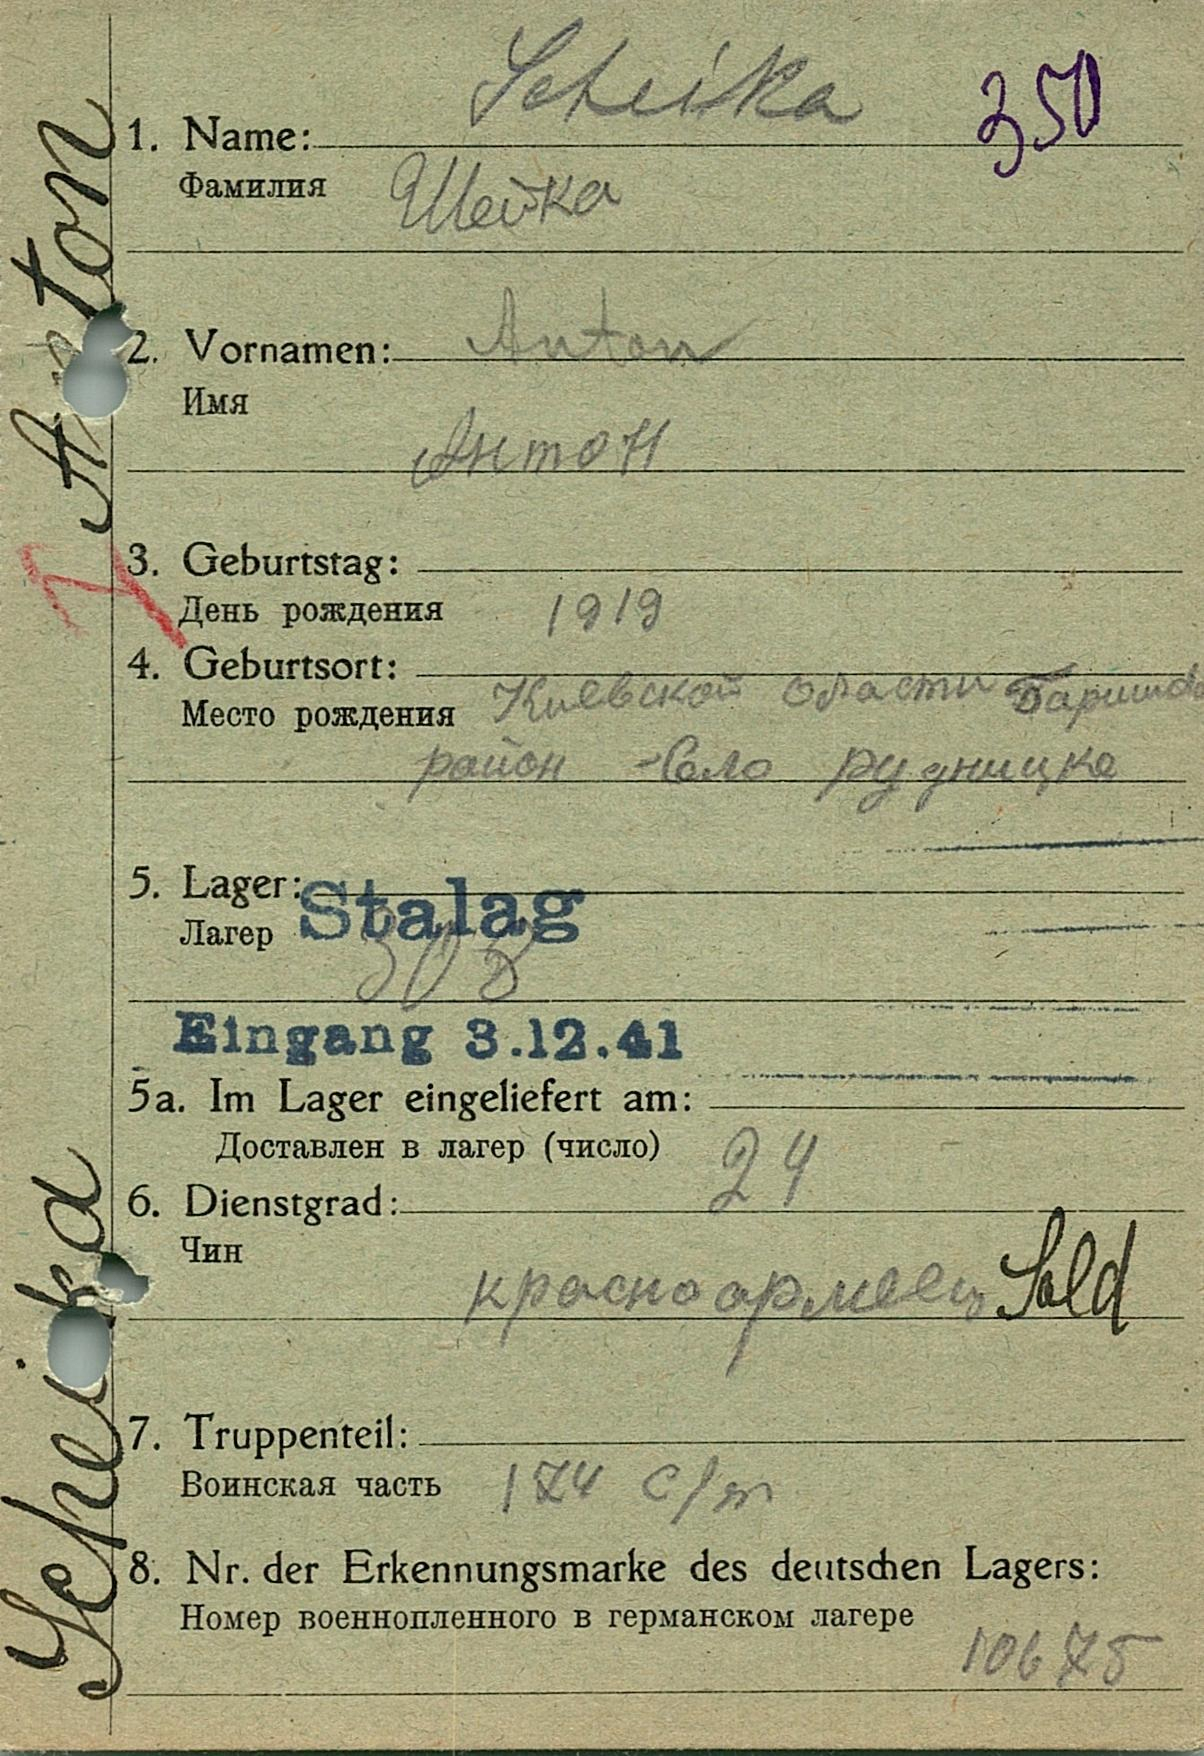 Scheika
350
1. Name:
Фамилия Шейка
2. Vornamen: Anton
Имя
Антон
3. Geburtstag:
День рождения 1919
4. Geburtsort:
Место рождения Киевской области
район Село Рудницке
5. Lager: Stalag
Лагер 308
Eingang 3.12.41
5a. Im Lager eingeliefert am:
Доставлен в лагер (число) 24
6. Dienstgrad:
Чин
красноармеец Sold
7. Truppenteil:
Воинская часть 174 с/п
8. Nr. der Erkennungsmarke des deutschen Lagers:
Номер военнопленного в германском лагере
10675
Scheika Anton